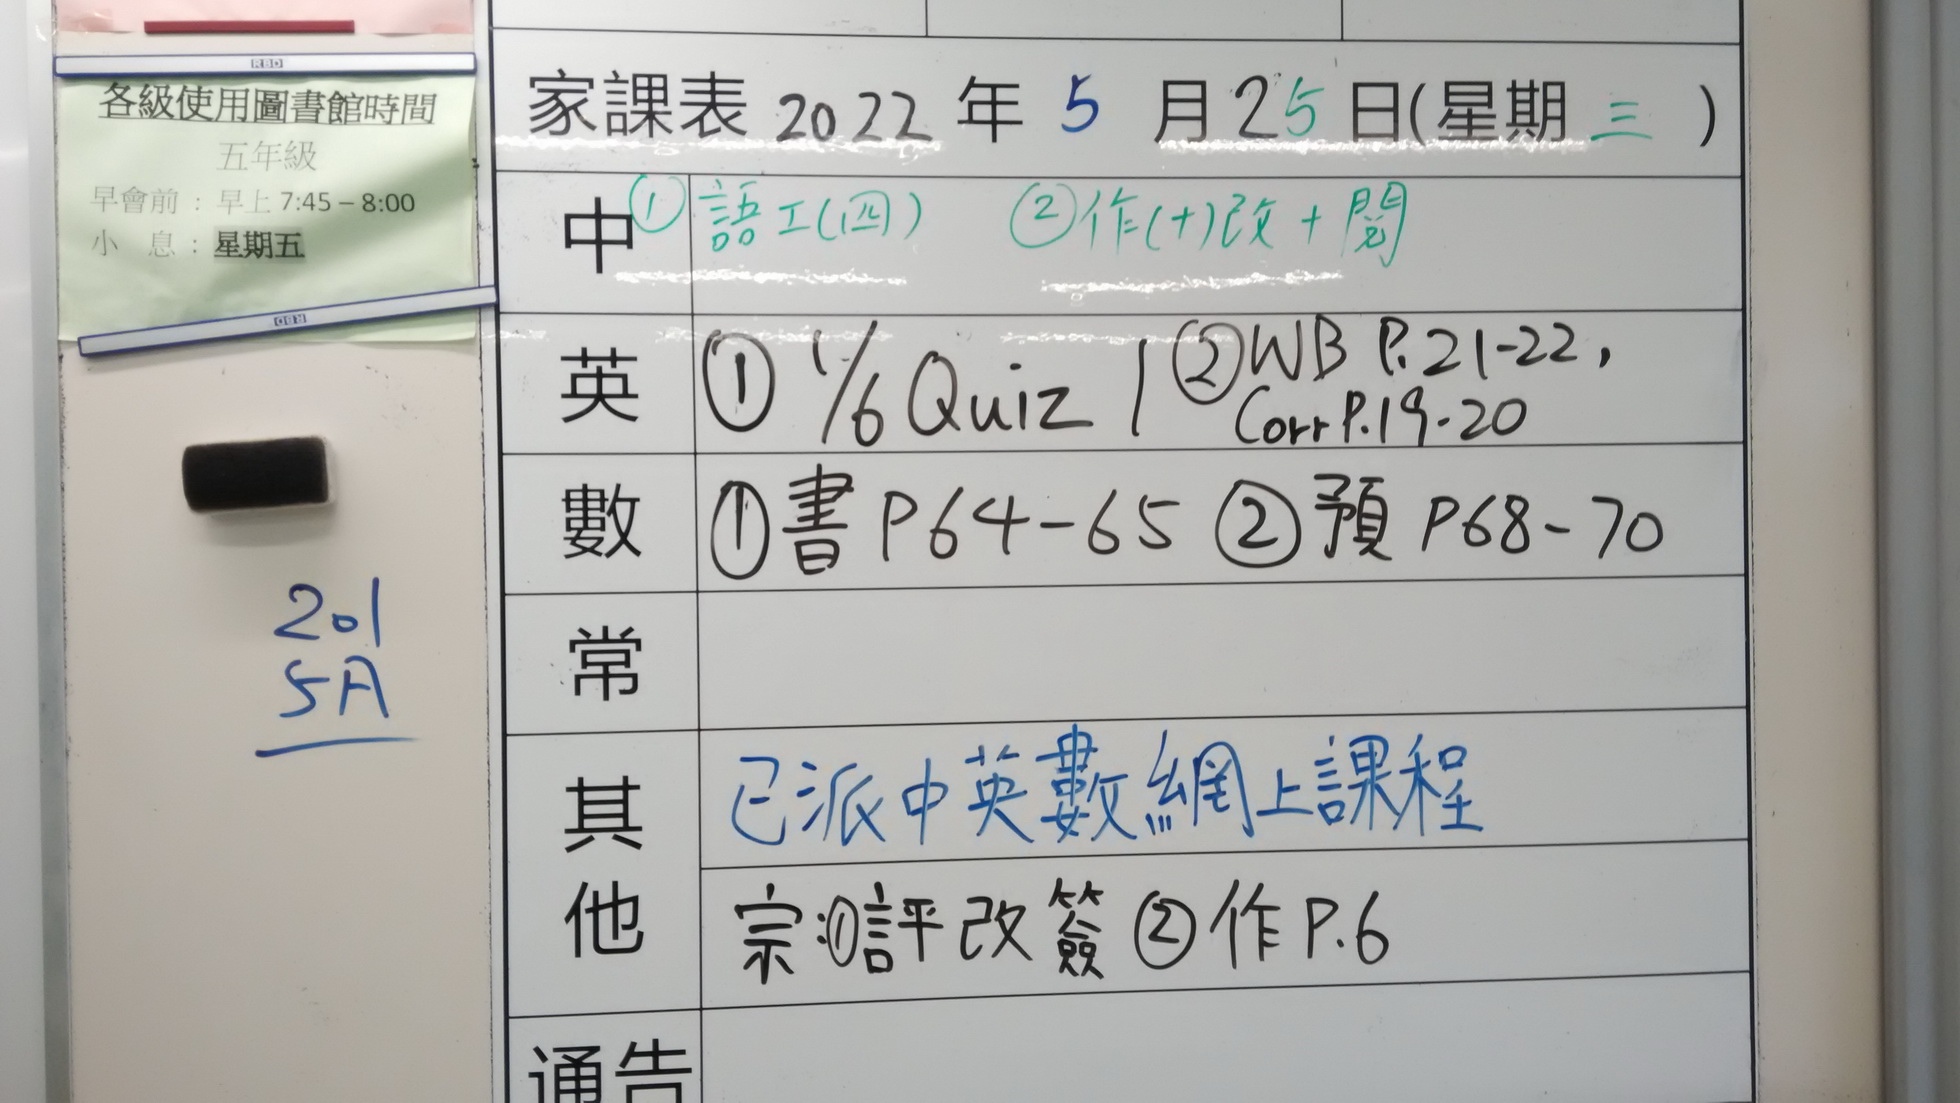 RBD
各級使用圖書館時間
五年級
早會前 : 早上 7:45 – 8:00
小 息 : 星期五
RBD
201
5A
家課表 2022 年 5 月 25 日(星期 三 )
中 ① 語工(四) ② 作(十)改 + 閱
英 ① 1/6 Quiz 1 ② WB P.21-22,
Corr P.19-20
數 ① 書 P64-65 ② 預 P68-70
常
其他 已派中英數網上課程
宗:① 評改簽 ② 作 P.6
通告